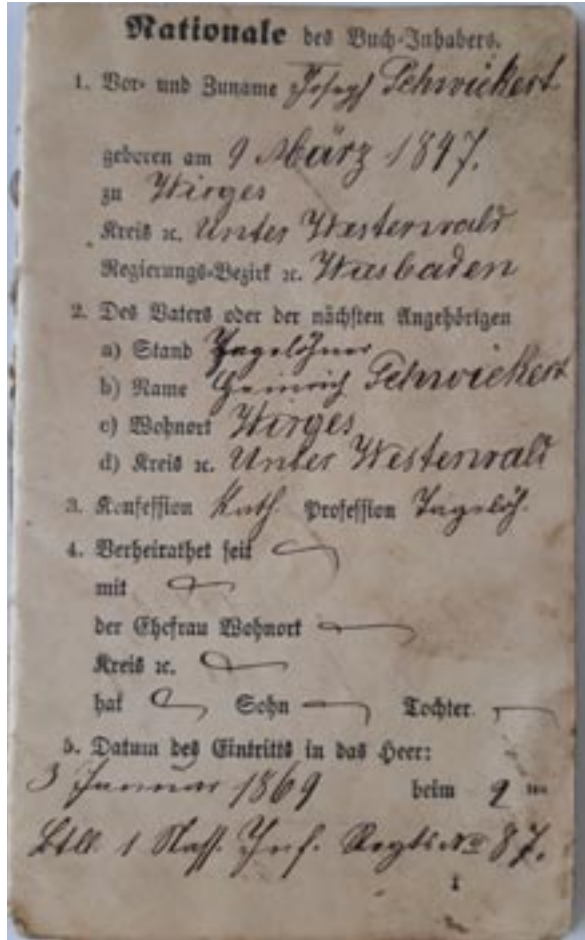 Nationale des Buch-Inhabers.
1. Vor- und Zuname Joseph Schwickert
geboren am 9 März 1847.
zu Wirges
Kreis ꝛc. Unter Westerwald
Regierungs-Bezirk ꝛc. Wiesbaden
2. Des Vaters oder der nächsten Angehörigen
a) Stand Tagelöhner
b) Name Heinrich Schwickert
c) Wohnort Wirges
d) Kreis ꝛc. Unter Westerwald
3. Konfession Kath. Profession Tagelöh.
4. Verheirathet seit
mit
der Ehefrau Wohnort
Kreis ꝛc.
hat Sohn Tochter.
5. Datum des Eintritts in das Heer:
3 Januar 1869 beim 9 ten
1 Nass. Inf. Regts No 87.
1